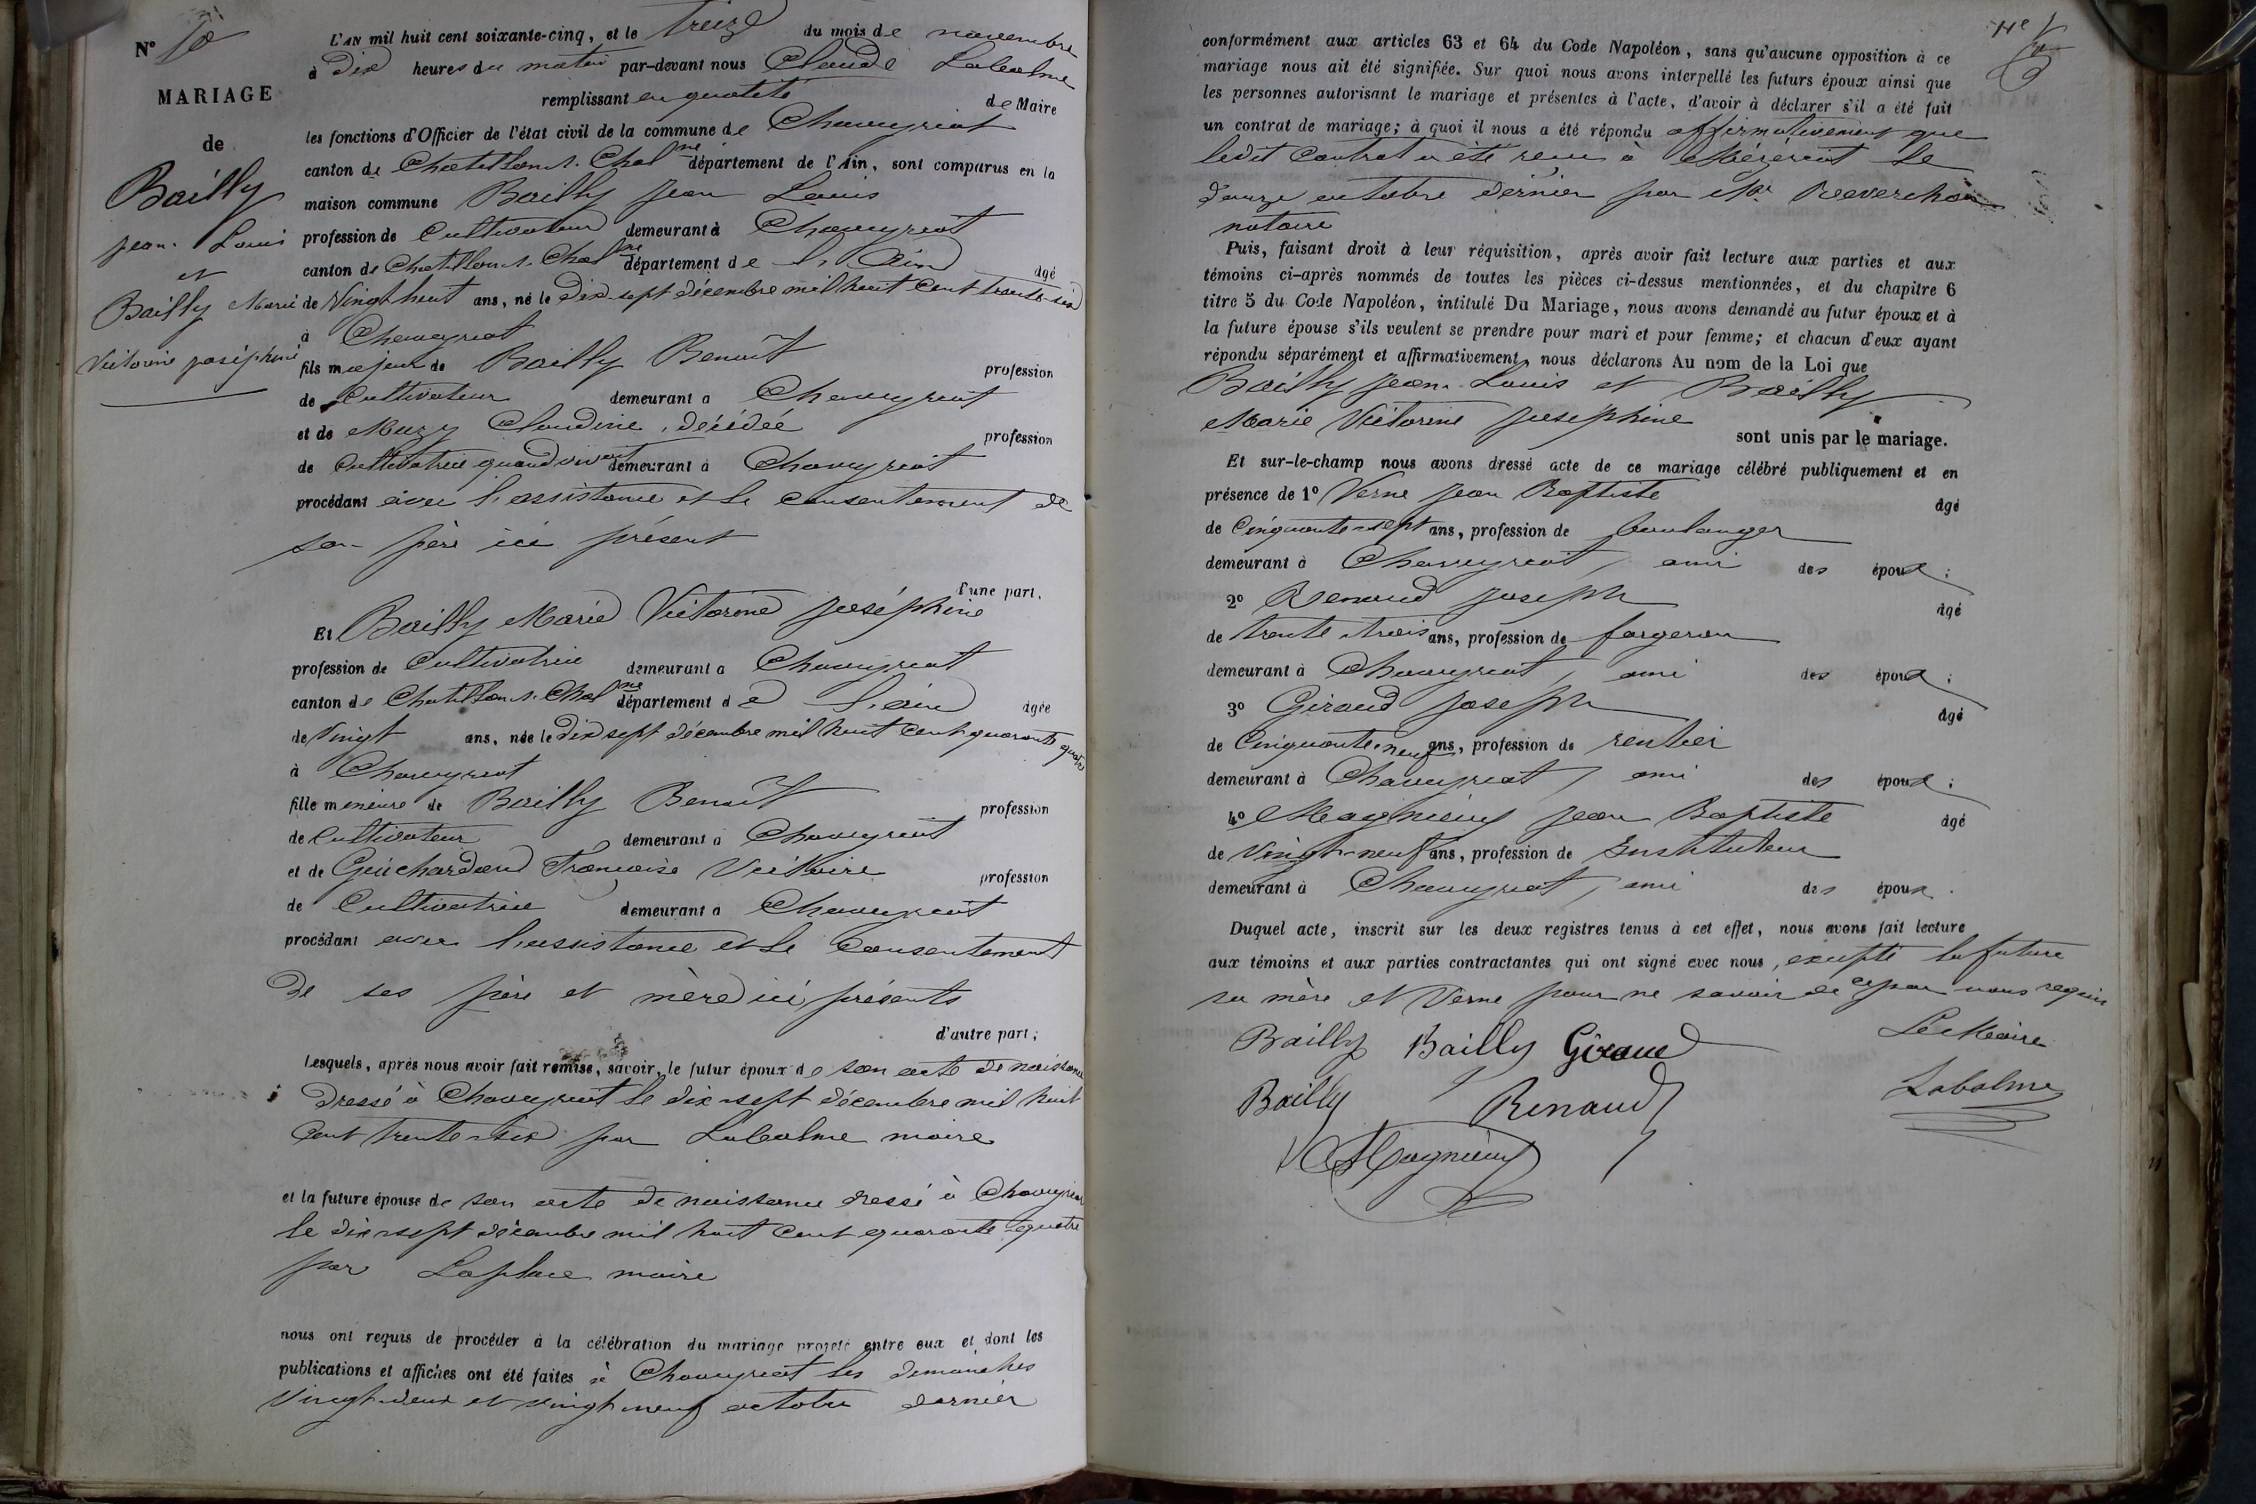 N° 10
MARIAGE
de
Bailly
jean-Louis
et
Bailly Marie
Victorine joséphine
L'AN mil huit cent soixante-cinq, et le treize du mois de novembre
à dix heures du matin par-devant nous Claude Labalme
remplissant en qualité de Maire
les fonctions d'Officier de l'état civil de la commune de Chaveyriat
canton de Chatillon s. Chal ne département de l'Ain, sont comparus en la
maison commune Bailly jean Louis
profession de Cultivateur demeurant à Chaveyriat
canton de Chatillon s. Chal ne département de l'Ain âgé
de Vingt huit ans, né le Dix-sept décembre mil huit cent trente-six
à Chaveyriat
fils majeur de Bailly Benoît profession
de Cultivateur demeurant à Chaveyriat
et de Mazy Claudine, décédée profession
de Cultivatrice quand vivait demeurant à Chaveyriat
procédant avec l'assistance et le consentement de
son père ici présent
d'une part.
Et Bailly Marie Victorine joséphine
profession de Cultivatrice demeurant à Chaveyriat
canton de Chatillon s. Chal ne département de l'ain âgée
de Vingt ans, née le Dix sept décembre mil huit cent quarante quatre
à Chaveyriat
fille mineure de Bailly Benoît profession
de Cultivateur demeurant à Chaveyriat
et de Guichardand Francoise Victoire profession
de Cultivatrice demeurant à Chaveyriat
procédant avec l'assistance et le Consentement
de ses père et mère ici présents
d'autre part;
Lesquels, après nous avoir fait remise, savoir, le futur époux de son acte de naissance
dressé à Chaveyriat le dix-sept décembre mil huit
cent trente-six par Labalme maire
et la future épouse de son acte de naissance dressé à Chaveyriat
le dix-sept décembre mil huit cent quarante-quatre
par Laplace maire
nous ont requis de procéder à la célébration du mariage projeté entre eux et dont les
publications et affiches ont été faites à Chaveyriat les dimanches
Vingt-deux et vingt-neuf octobre dernier
conformément aux articles 63 et 64 du Code Napoléon, sans qu'aucune opposition à ce
mariage nous ait été signifiée. Sur quoi nous avons interpellé les futurs époux ainsi que
les personnes autorisant le mariage et présentes à l'acte, d'avoir à déclarer s'il a été fait
un contrat de mariage; à quoi il nous a été répondu affirmativement que
ledit Contrat a été recu à Mézériat le
douze octobre dernier par Me Reverchon
notaire
Puis, faisant droit à leur réquisition, après avoir fait lecture aux parties et aux
témoins ci-après nommés de toutes les pièces ci-dessus mentionnées, et du chapitre 6
titre 5 du Code Napoléon, intitulé Du Mariage, nous avons demandé au futur époux et à
la future épouse s'ils veulent se prendre pour mari et pour femme; et chacun d'eux ayant
répondu séparément et affirmativement, nous déclarons Au nom de la Loi que
Bailly jean-Louis et Bailly
Marie Victorine josephine
sont unis par le mariage.
Et sur-le-champ nous avons dressé acte de ce mariage célébré publiquement et en
présence de 1° Verne jean Baptiste âgé
de Cinquante-sept ans, profession de boulanger
demeurant à Chaveyriat, ami des époux;
2° Renaud joseph âgé
de trente-trois ans, profession de forgeron
demeurant à Chaveyriat, ami des époux;
3° Giraud joseph âgé
de Cinquante-neuf ans, profession de rentier
demeurant à Chaveyriat, ami des époux;
4° Magnieny jean Baptiste âgé
de Vingt-neuf ans, profession de Instituteur
demeurant à Chaveyriat, ami des époux.
Duquel acte, inscrit sur les deux registres tenus à cet effet, nous avons fait lecture
aux témoins et aux parties contractantes qui ont signé avec nous, excepté la future
sa mère et Verne pour ne savoir de ce par nous requis
Bailly Bailly Giraud Le Maire
Bailly Renaud Labalme
Magnieny